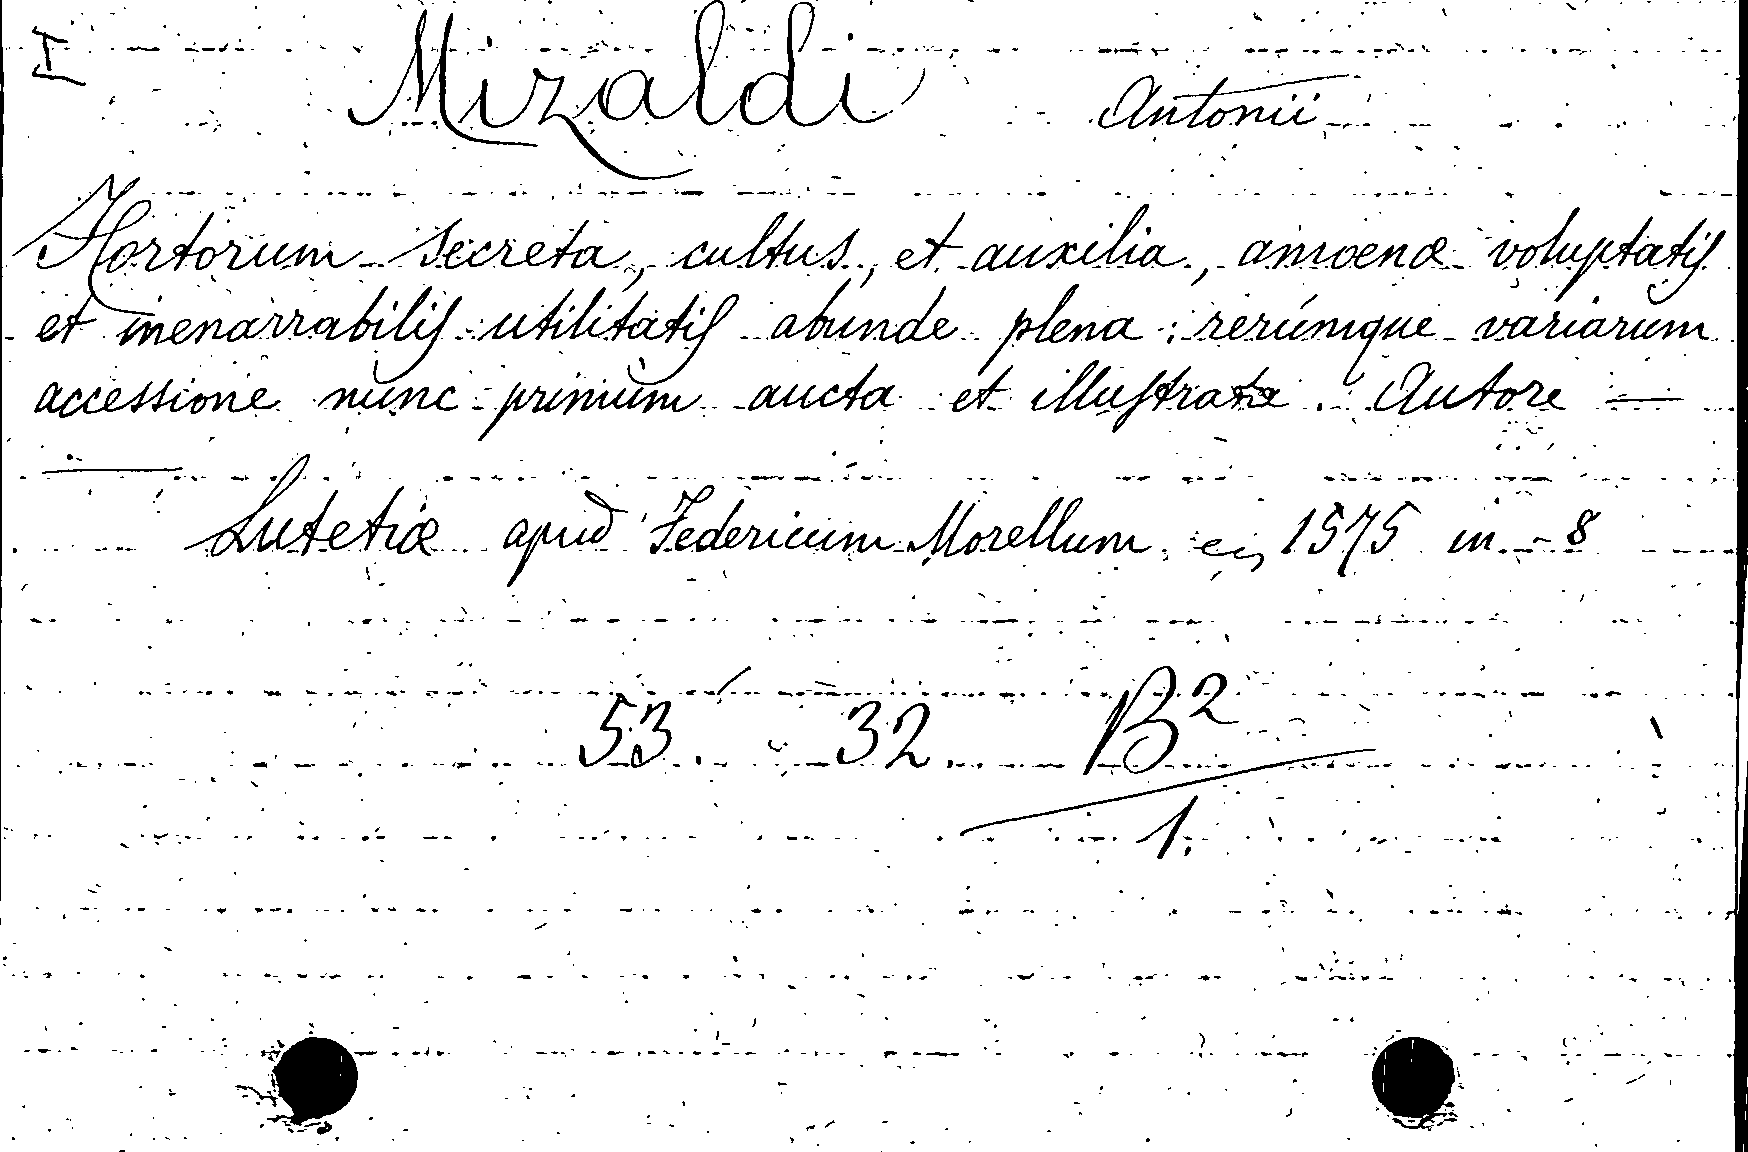 I
Mizaldi Antonii
Hortorum secreta, cultus, et auxilia, amoenæ voluptatis
et inenarrabilis utilitatis abunde plena : rerúmque variarum
accessione nunc primùm aucta et illustrata. Autore —
—
Lutetiæ apud Federicum Morellum, 1575 in-8
53. 32. B²
1.